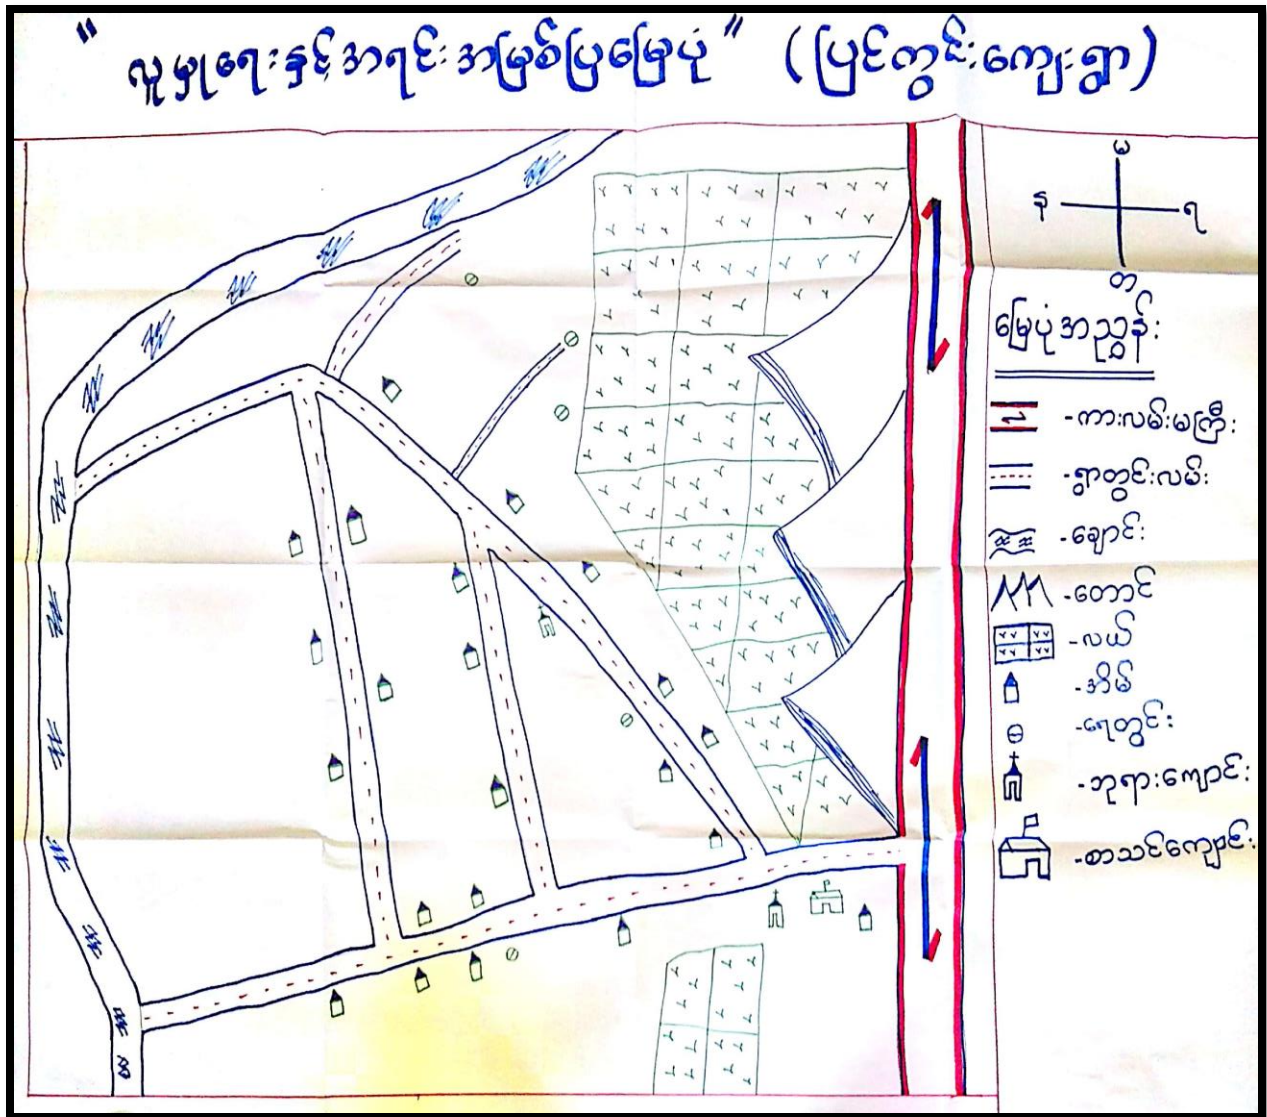 "လူမှုရေးနှင့်အရင်းအမြစ်ပြမြေပုံ" (ပြင်ကွင်းကျေးရွာ)
မ
န ရ
တ
မြေပုံအညွှန်း
-ကားလမ်းမကြီး
-ရွာတွင်းလမ်း
-ချောင်း
-တောင်
-လယ်
-အိမ်
-ရေတွင်း
-ဘုရားကျောင်း
-စာသင်ကျောင်း